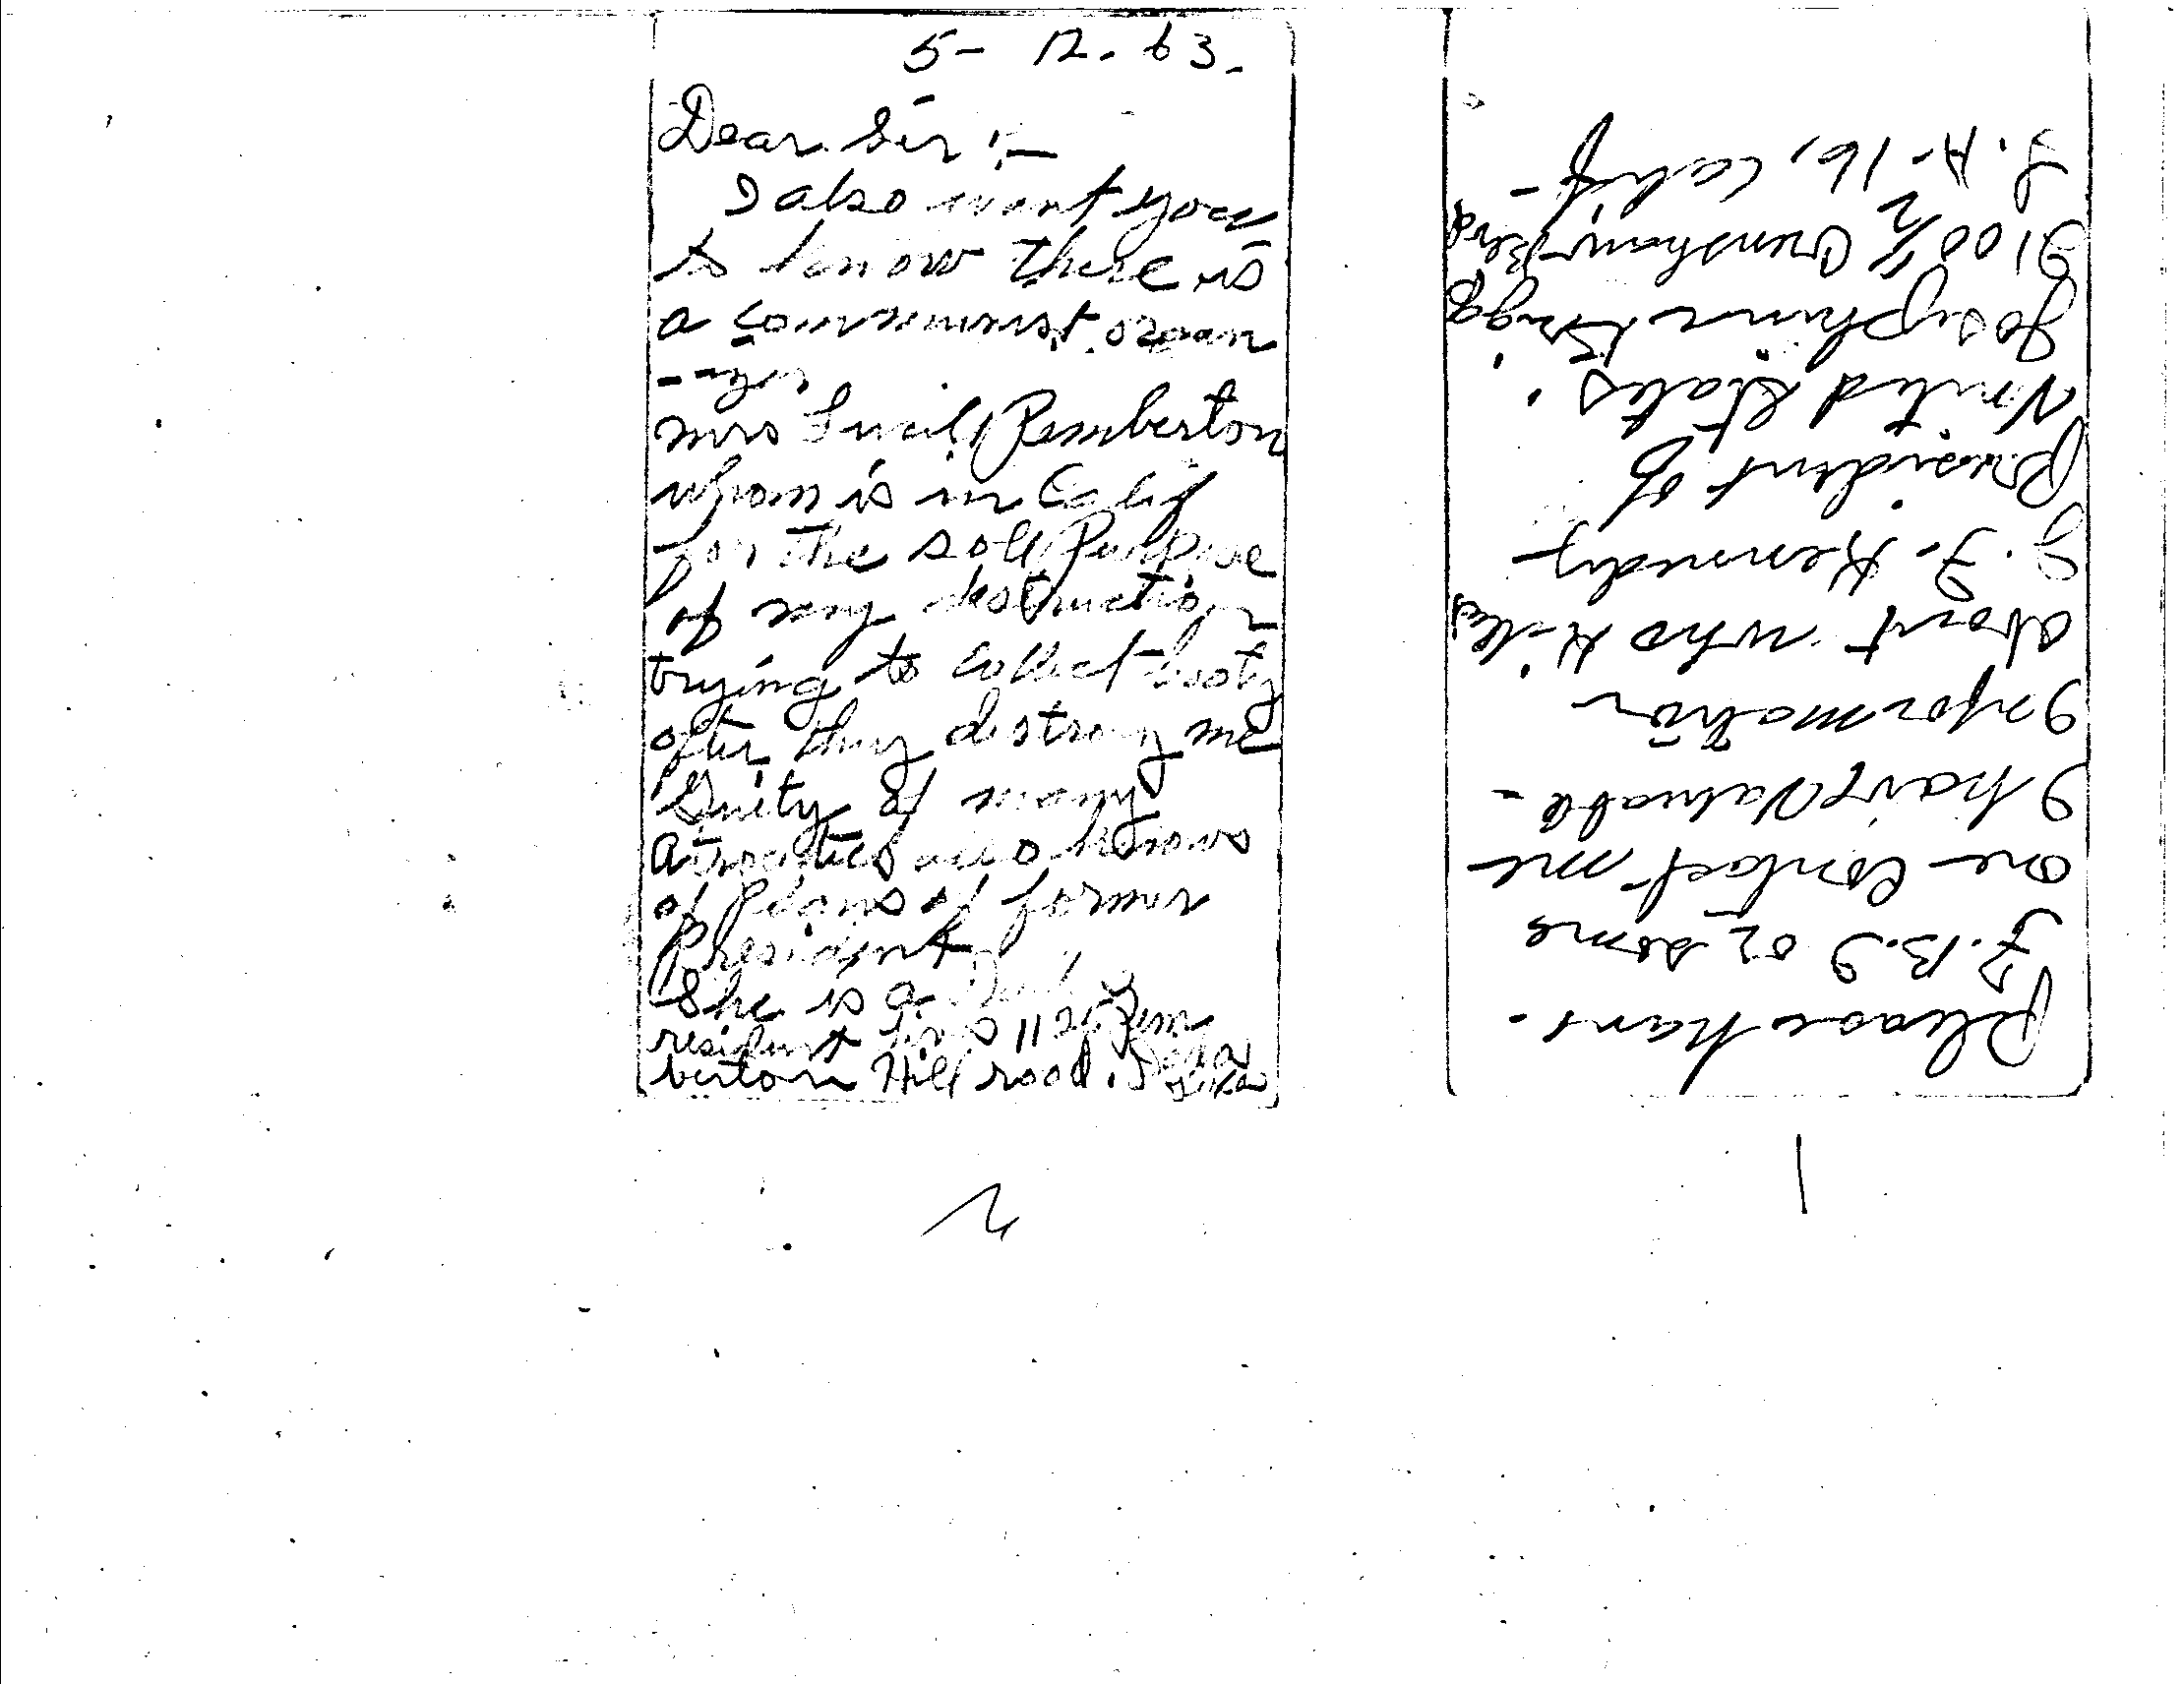 5-12.63.
Dear Sir :-
I also want you
to know there is
a communist organ
mrs Lucile Pemberton
whom is in Calif
for the sole Purpose
of my destruction
trying to collect booty
after they destroy me
Guity of many
atrocities also knows
of Plans of former
President
She is a
resident lives 112 Pem
berton Hill road.
2
Please have
F.B.I or some
one Contact me
I have Valuable -
Information
about who Killed
J. F. Kennedy
President of
United States.
Josephine
3100 ½ Crenshaw Blvd
L. A. 16, Calif -
1